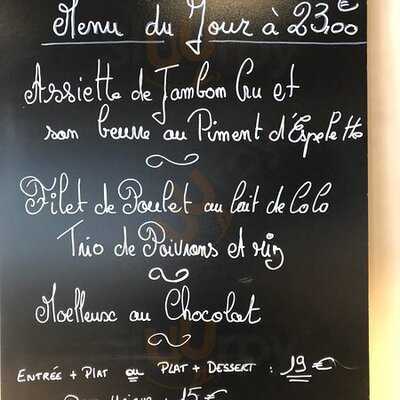 Menu du Jour à 23.00 €
Assiette de Jambon Cru et
son beurre au Piment d'Espelette
Filet de Poulet au lait de Coco
Trio de Poivrons et riz
Moelleux au Chocolat
ENTRÉE + PLAT ou PLAT + DESSERT : 19 €
: 15 €